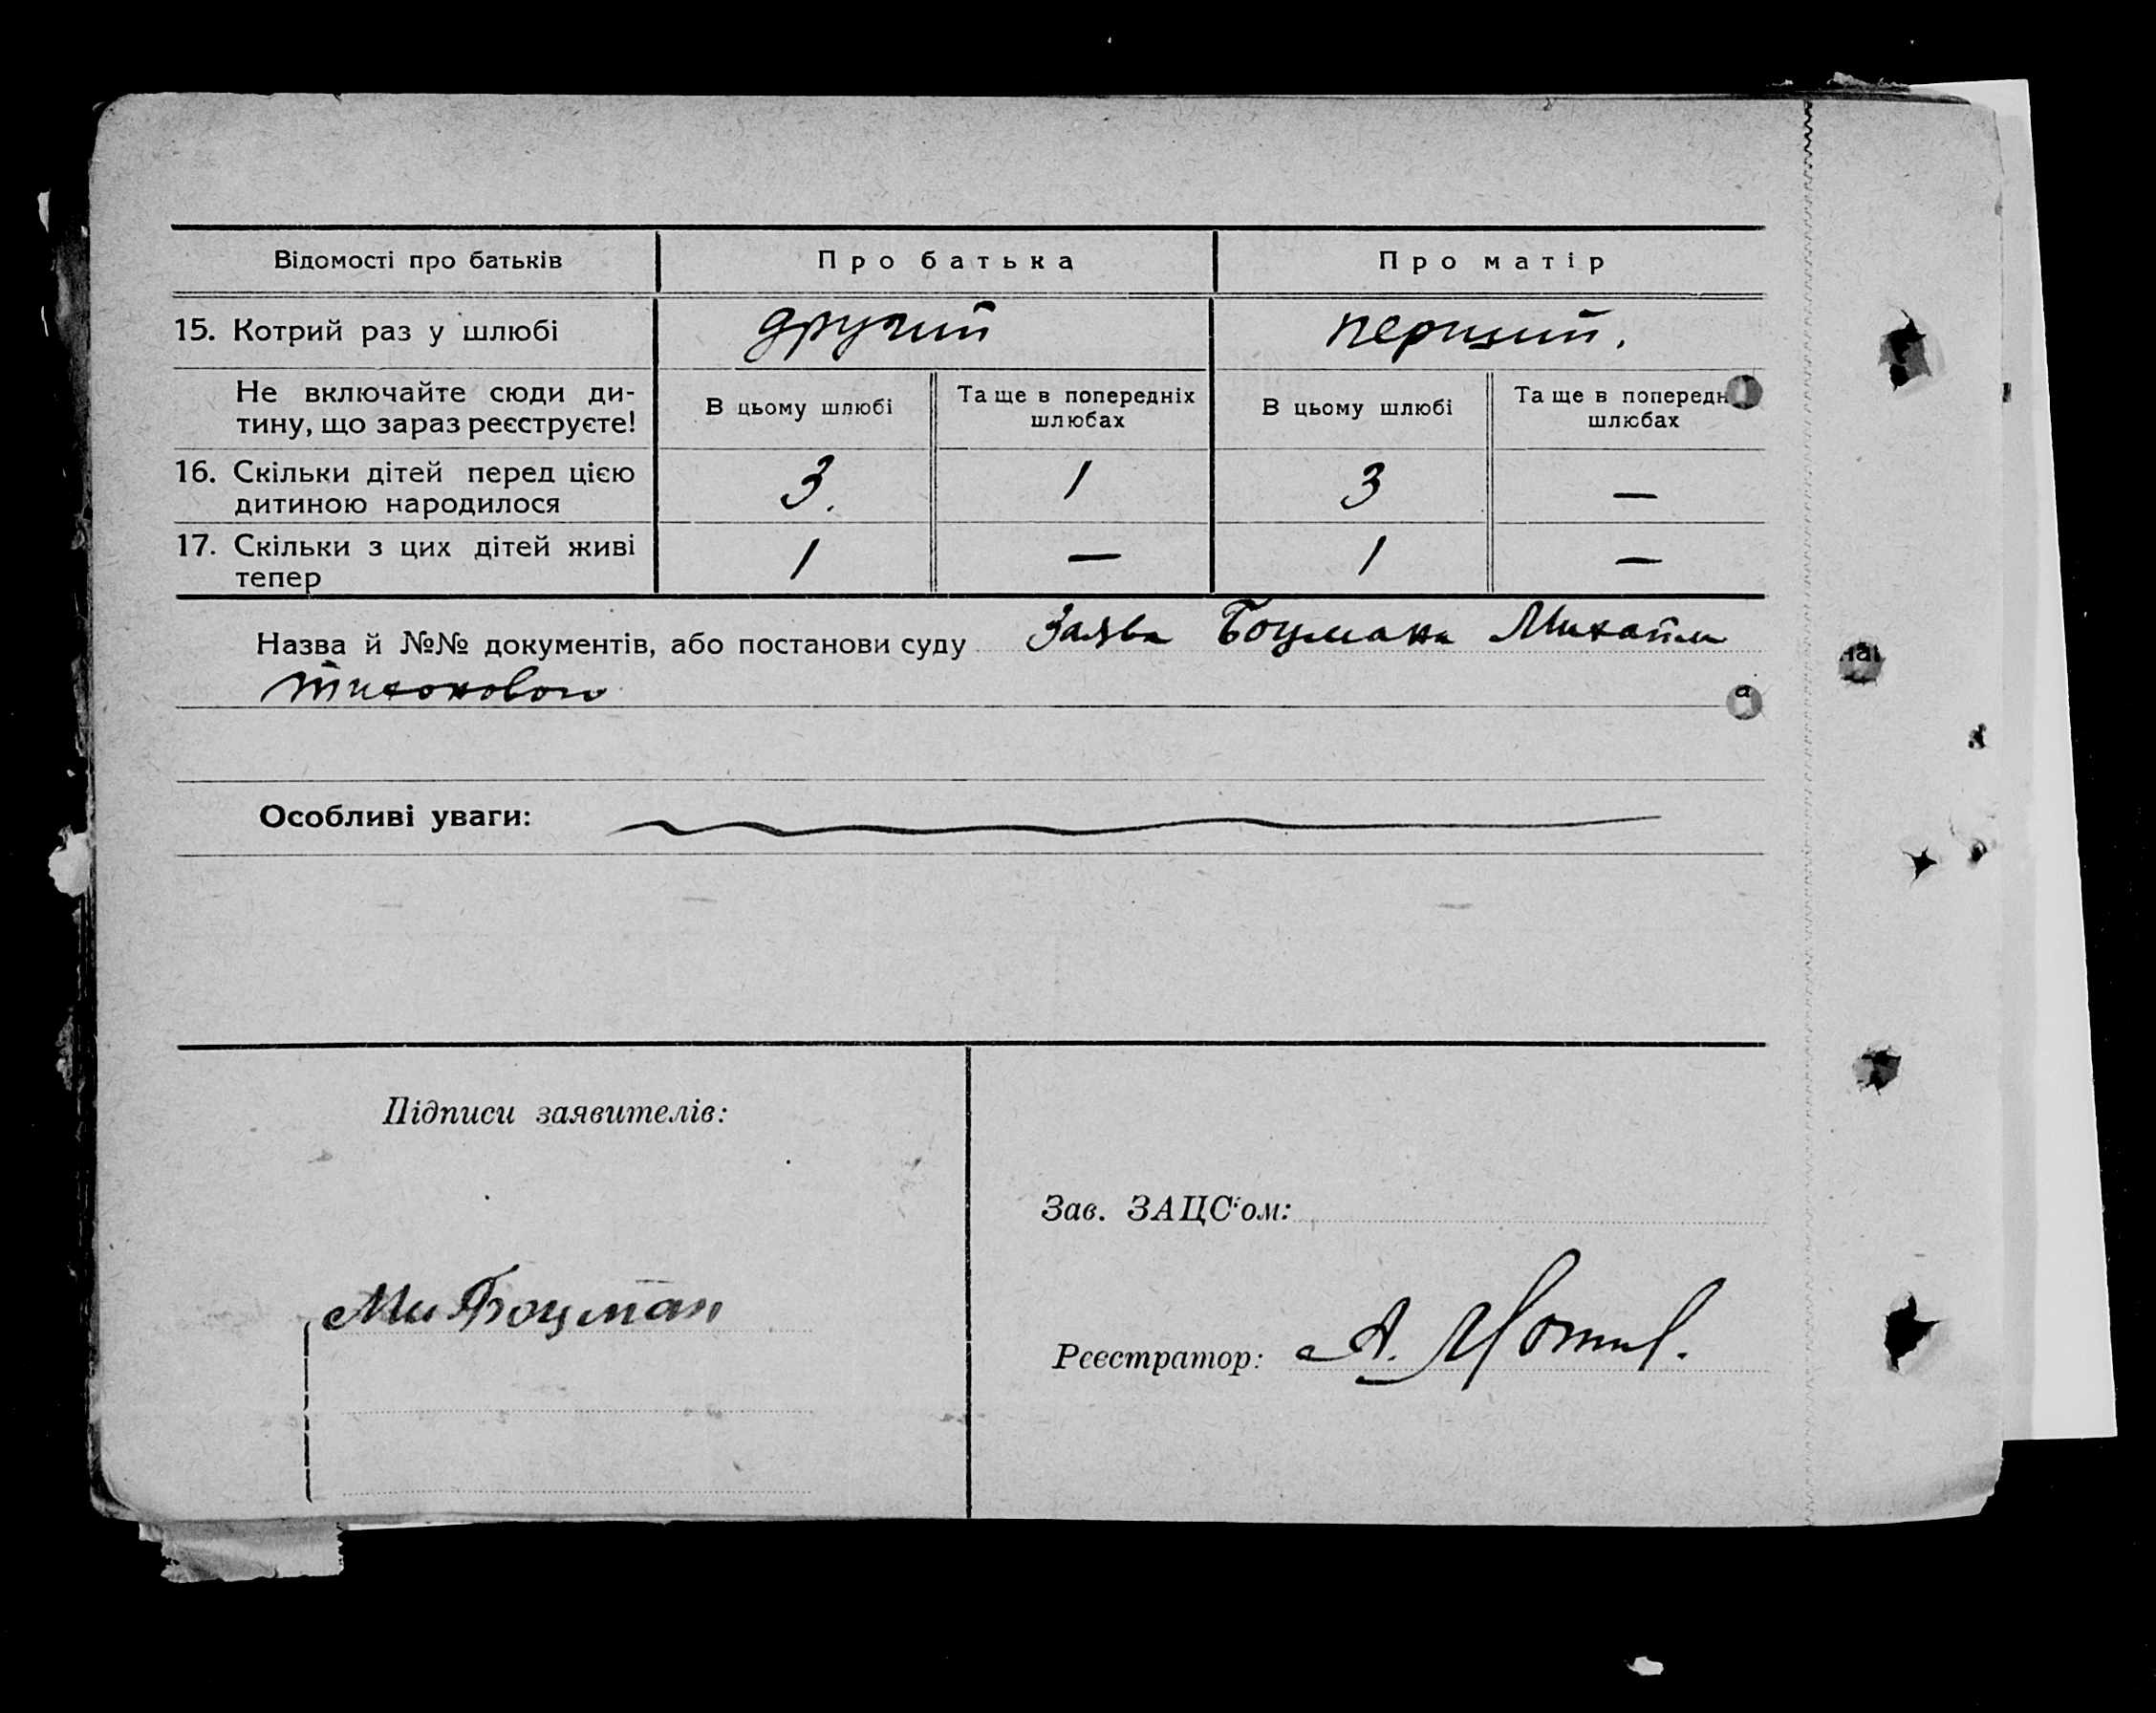 Відомості про батьків Про батька Про матір
15. Котрий раз у шлюбі другий перший.
Не включайте сюди ди-
тину, що зараз реєструєте!
В цьому шлюбі
Та ще в попередніх
шлюбах
В цьому шлюбі
Та ще в попередн
шлюбах
16. Скільки дітей перед цією
дитиною народилося
3. 1 3 —
17. Скільки з цих дітей живі
тепер
1 — 1 —
Назва й №№ документів, або постанови суду Заява Боцмана Михайла
Тихонового
Особливі уваги:
Підписи заявителів:
Ми Боцман
Зав. ЗАЦС'ом:
Реєстратор: А.